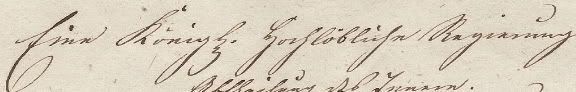 Eine Königl. Hochlöbliche Regierung
Abtheilung des Innern.